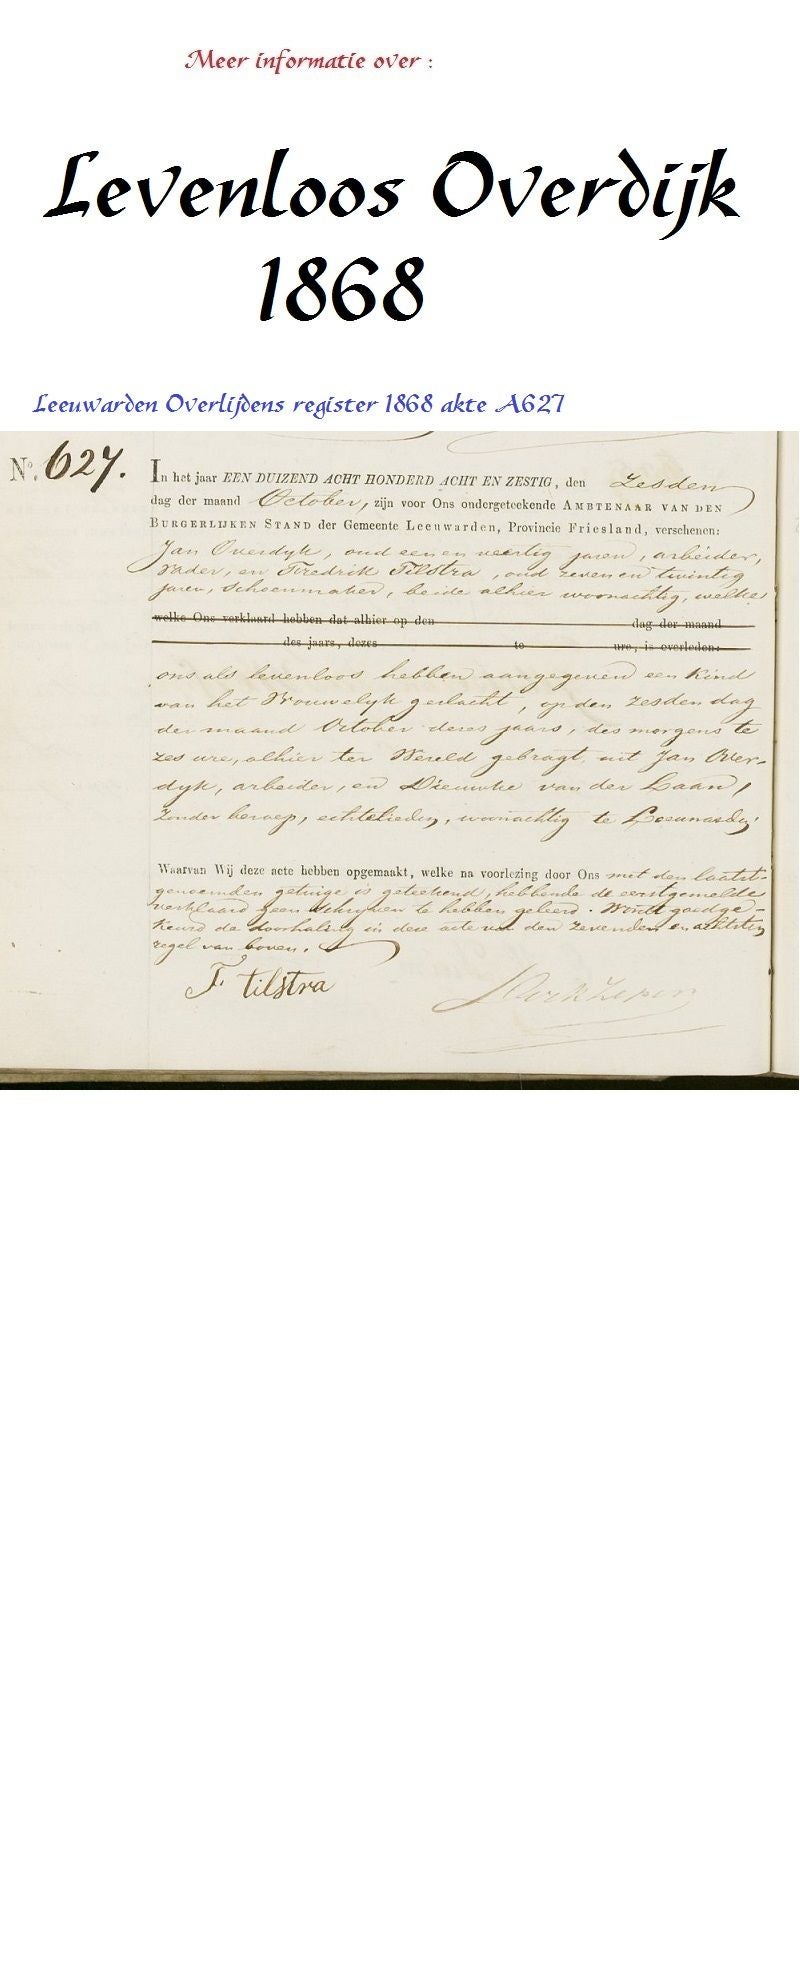 Meer informatie over :
Levenloos Overdijk
1868
Leeuwarden Overlijdens register 1868 akte A627
No. 627.
In het jaar EEN DUIZEND ACHT HONDERD ACHT EN ZESTIG, den zesden
dag der maand October, zijn voor Ons ondergeteekende AMBTENAAR VAN DEN
BURGERLIJKEN STAND der Gemeente Leeuwarden, Provincie Friesland, verschenen:
Jan Overdyk, oud een en veertig jaren, arbeider,
Vader, en Fredrik Tilstra, oud zeven en twintig
jaren, Schoenmaker, beide alhier woonachtig, welke
welke Ons verklaard hebben dat alhier op den dag der maand
des jaars, dezes te ure, is overleden:
ons als levenloos hebben aangegeven een kind
van het Vrouwelyk geslacht, op den zesden dag
der maand October dezes jaars, des morgens te
zes ure, alhier ter Wereld gebragt, uit Jan Over-
dyk, arbeider, en Dieuwke van der Laan,
zonder beroep, echtelieden, woonachtig te
Waarvan Wij deze acte hebben opgemaakt, welke na voorlezing door Ons met den laatst-
genoemden getuige is geteekend, hebbende de eerstgemelde
verklaard geen schryven te hebben geleerd. Wordt goedge-
keurd de doorhaling in deze acte van den zevenden en achtsten
regel van boven.
F. tilstra